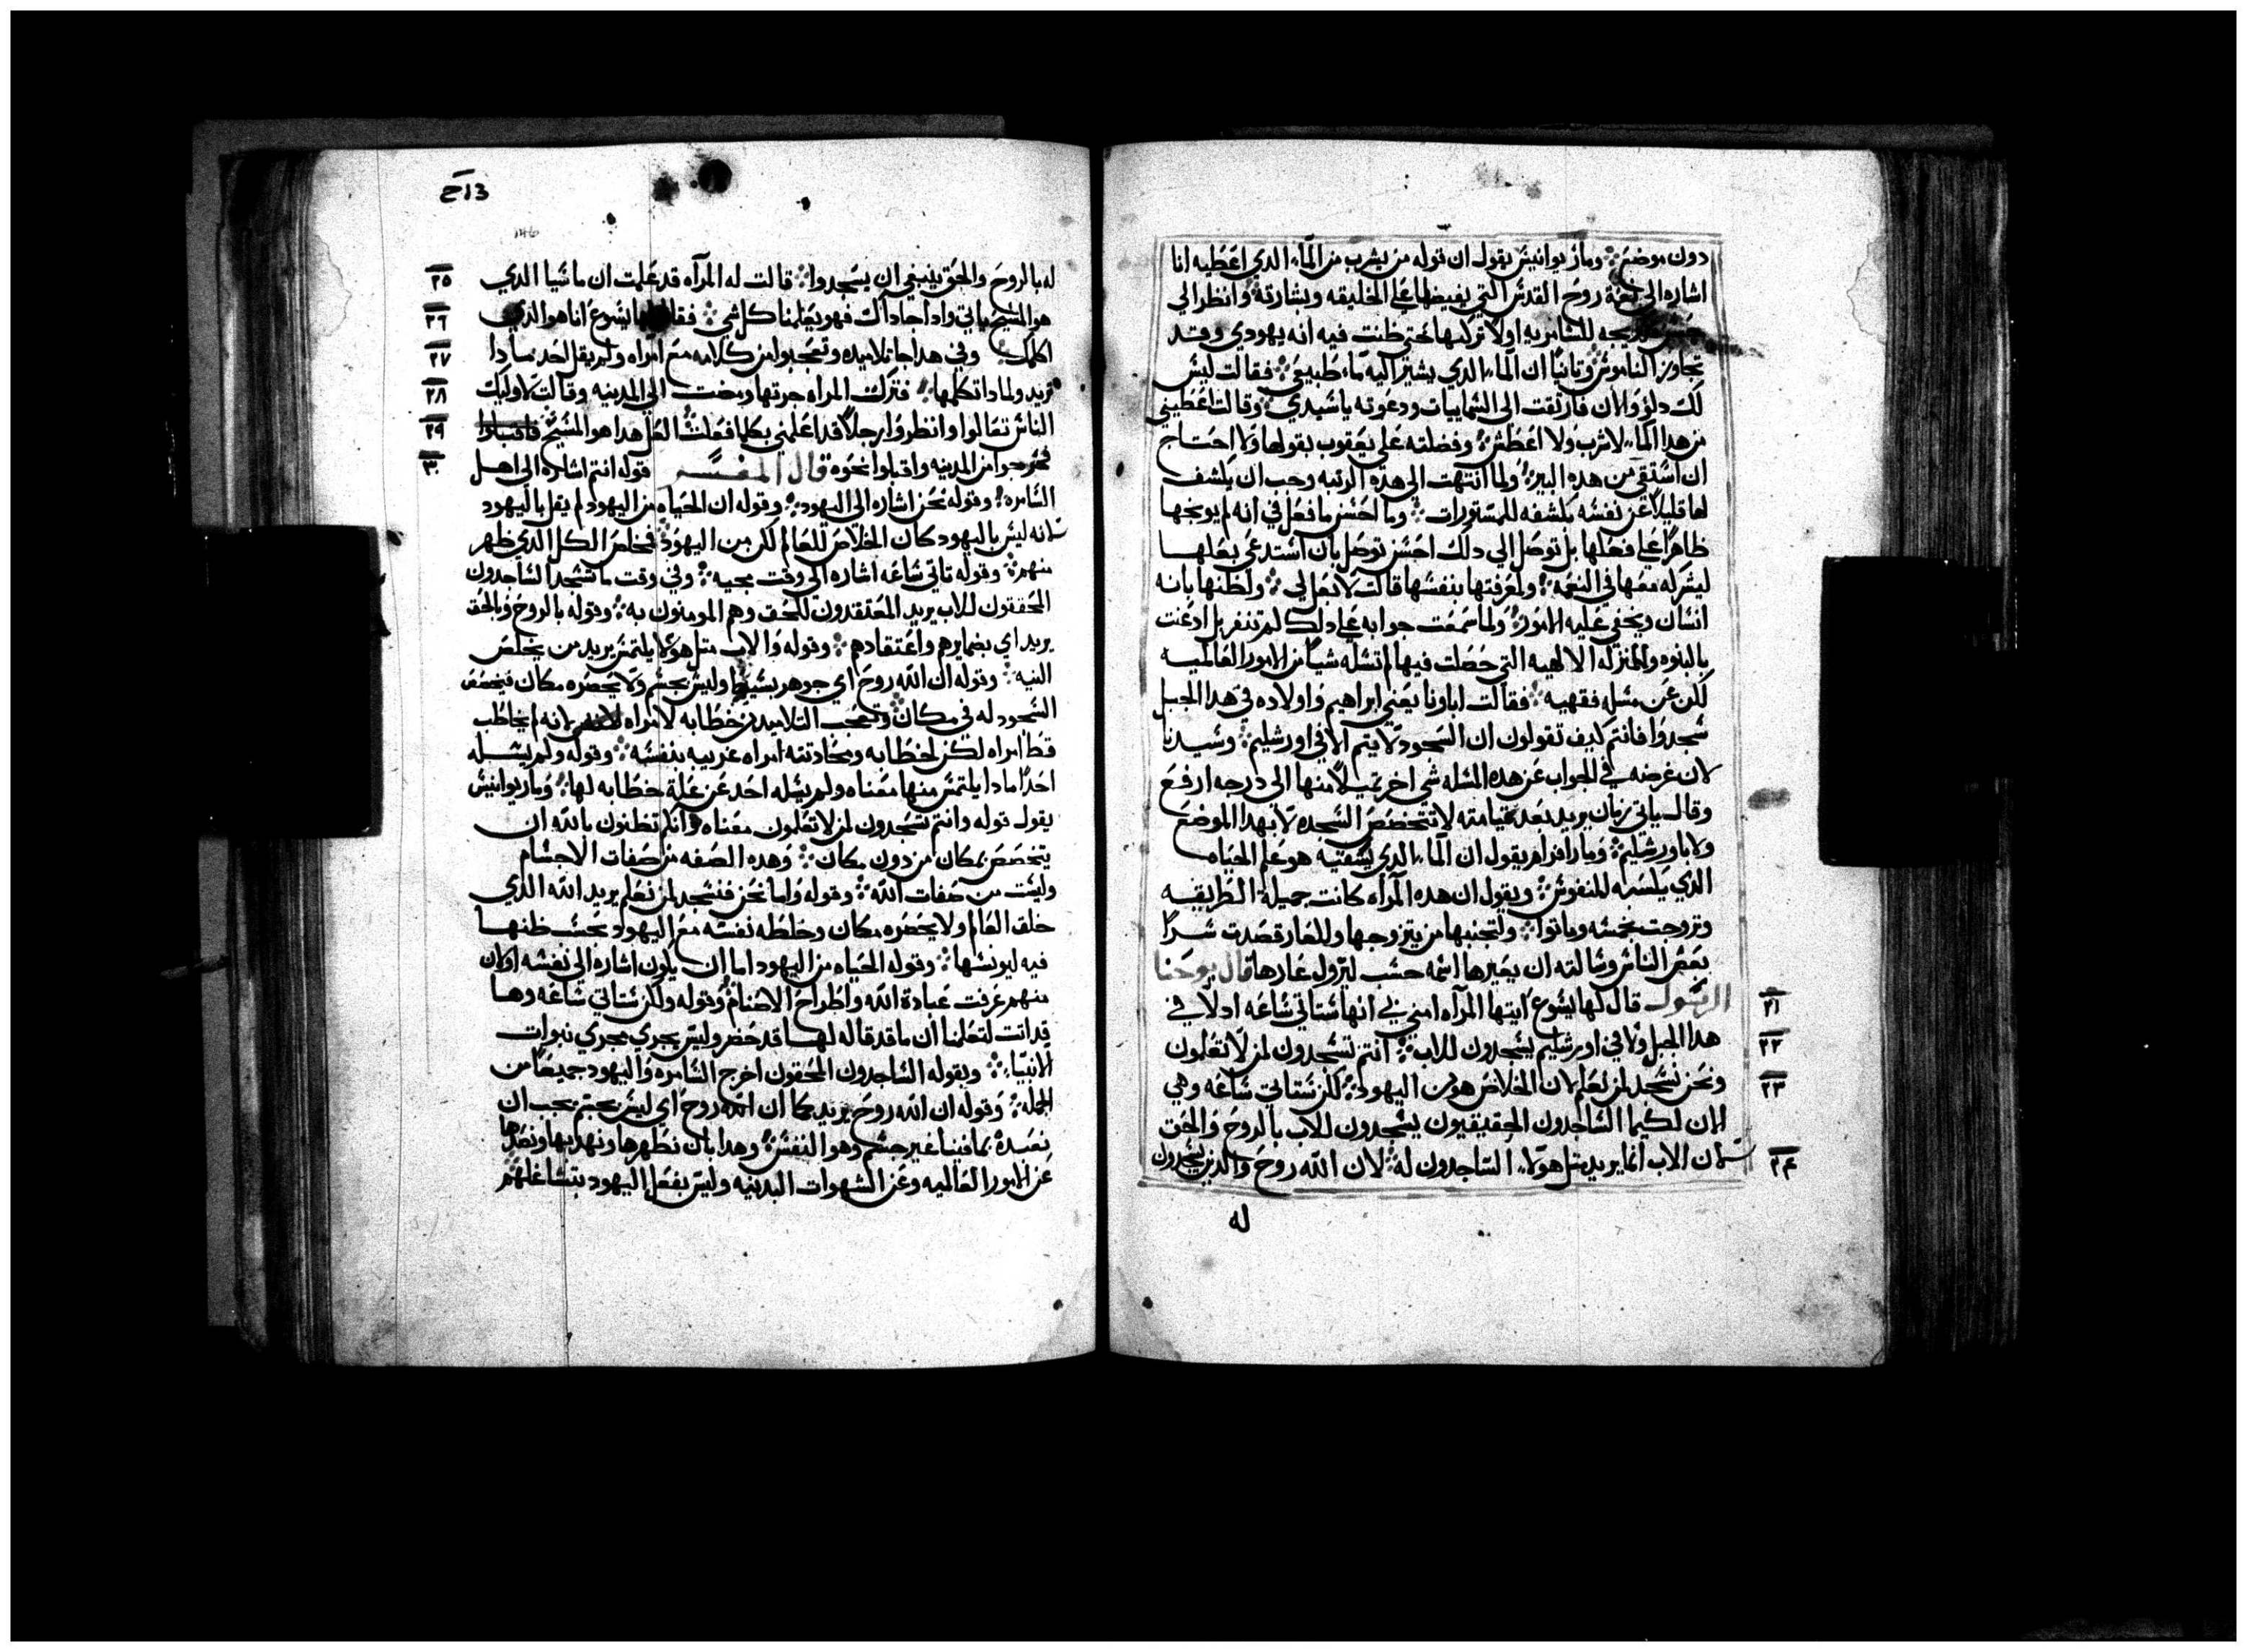 دون موضع ومار يوانيس يقول ان قوله من يشرب من الماء الدي اعطيه انا
اشاره الى نعمة روح القدس التي يفيضها على الخليقه وبشارته وانظر الي
للسامريه اولا تركها حتى ظنت فيه انه يهودي وقد
تجاوز الناموس وتانيا ان الماء الدي يشير اليه ماء طبيعي فقالت ليس
لك دلو والان فارتقت الى السماييات ودعوته ياسيدي وقالت اعطيني
من هدا الماء لاشرب ولا اعطش وفضلته على يعقوب بقولها ولا احتاج
ان استقي من هده البير ولما انتهت الى هده الرتبه وجب ان يكشف
لها قليلا عن نفسه بكشفه للمستورات وما احسن ما فعل في انه لم يوبخها
ظاهرا على فعلها بل توصل الي دلك احسن توصل بان استدعى بعلها
ليشركه معها في النعمه ولمعرفتها بنفسها قالت لا بعل لي ولظنها بانه
انسان ويخفي عليه الامور ولما سمعت جوابه على دلك لم تنفر بل ادعنت
بالنبوه وللمنزله الالهيه التي حصلت فيها لم تسله شيا من الامور العالميه
لكن عن مسله فقهيه فقالت اباونا يعني ابراهيم واولاده في هدا الجبل
سجدوا فانتم كيف تقولون ان السجود لا يتم الا في اورشليم وسيدنا
لان غرضه في الجواب عن هده المسله شي اخر منها الى درجه ارفع
وقال ياتي زمان يريد بعد قيامته لا تتخصص السجده لا بهدا الموضع
ولا باورشليم ومار افرام يقول ان الماء الدي يسقيه هو علم الحياه
الدي يكسبه للنفوس ويقول ان هده المرأه كانت جميلة الطريقه
وتزوجت بخمسه وماتوا ولتجنبها من يتزوجها وللعار قصدت سرا
بعض الناس وسالته ان يعيرها اسمه حسب ليزول عارها قال يوحنا
٢١ الرسول قال لها يسوع ايتها المرآه امني بي انها ستاتي ساعه ادلا في
٢٢ هدا الجبل ولا في اورشليم يسجدون للاب انتم تسجدون لمن لا تعلمون
٢٣ ونحن نسجد لمن نعلم لان الخلاص هو من اليهود لكن ستاتي ساعه وهي
الان لكيما الساجدون الحقيقيون يسجدون للاب بالروح والحق
٢٤ لان الاب انما يريد مثل هولاء الساجدون له لان الله روح والدين يسجدون
له
146
له بالروح والحق ينبغي ان يسجدوا قالت له المرآه قد علمت ان ماشيا الدي ٢٥
هو المسيح ياتي وادا جا داك فهو يعلمنا كل شي يسوع انا هو الدي ٢٦
اكلمك وفي هدا جا تلاميده وتعجبوا من كلامه مع امراه ولم يقل احد مادا ٢٧
تريد ولمادا تكلمها فتركت المراه جرتها ومضت الى المدينه وقالت لاوليك ٢٨
الناس تعالوا وانظروا رجلا قد اعلمني بكلما فعلت لعل هدا هو المسيح فاقبلوا ٢٩
فخرجوا من المدينه واقبلوا نحوه قال المفسر قوله انتم اشاره الى اهل ٣٠
السامره وقوله نحن اشاره الى اليهود وقوله ان الحياه من اليهود لم يقل باليهود
لانه ليس باليهود كان الخلاص للعالم لكن من اليهود فمخلص الكل الدي ظهر
منهم وقوله تاتي ساعه اشاره الى وقت مجيه وفي وقت ما تسجد الساجدون
المحققون للاب يريد المعتقدون للحق وهم المومنون به وقوله بالروح وبالحق
يريد اي بضمايرهم واعتقادهم وقوله والاب مثل هولا يلتمس يريد من يخلص
النيه وقوله ان الله روح اي جوهر بسيط وليس بجسم ولا يحصره مكان فيخصص
السجود له في مكان وتعجب التلاميد من خطابه لامراه لانه لم يخاطب
قط امراه لكن لخطابه ومحادتته امراه غريبه بنفسه وقوله ولم يسله
احدا مادا يلتمس منها معناه ولم يسله احد عن علة خطابه لها ومار يوانيس
يقول قوله وانتم تسجدون لمن لا تعلمون معناه وانكم تظنون بالله ان
يتخصص بمكان من دون مكان وهده الصفه من صفات الاجسام
وليست من صفات الله وقوله واما نحن فنسجد لمن نعلم يريد الله الدي
خلق العالم ولا يحصره مكان وخلطه نفسه مع اليهود بحسب ظنها
فيه ليونسها وقوله الحياه من اليهود اما ان يكون اشاره الى نفسه او لان
منهم عرفت عبادة الله واطراح الاصنام وقوله ولكن ستاتي ساعه وها
قد اتت لتعلمنا ان ما قد قاله لها قد حضر وليس يجري مجري نبوات
الانبياء وبقوله الساجدون المحقون اخرج السامره واليهود جميعا من
الجمله وقوله ان الله روح يريد بما ان الله روح اي ليس بجسم يجب ان
نعبده بما فينا غير جسم وهو النفس وهدا بان نطهرها ونهديها ونصدها
عن الامور العالميه وعن الشهوات البدنيه وليس بفعل اليهود بتشاغلهم